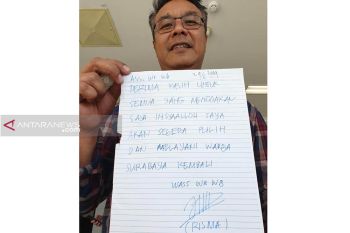 ASS WR WB
TERIMA KASIH UNTUK
SEMUA YANG MENDOAKAN
SAYA INSYAALLOH SAYA
AKAN SEGERA PULIH
DAN MELAYANI WARGA
SURABAYA KEMBALI
WASS WR WB
(RISMA)
ANTARANEWS.com